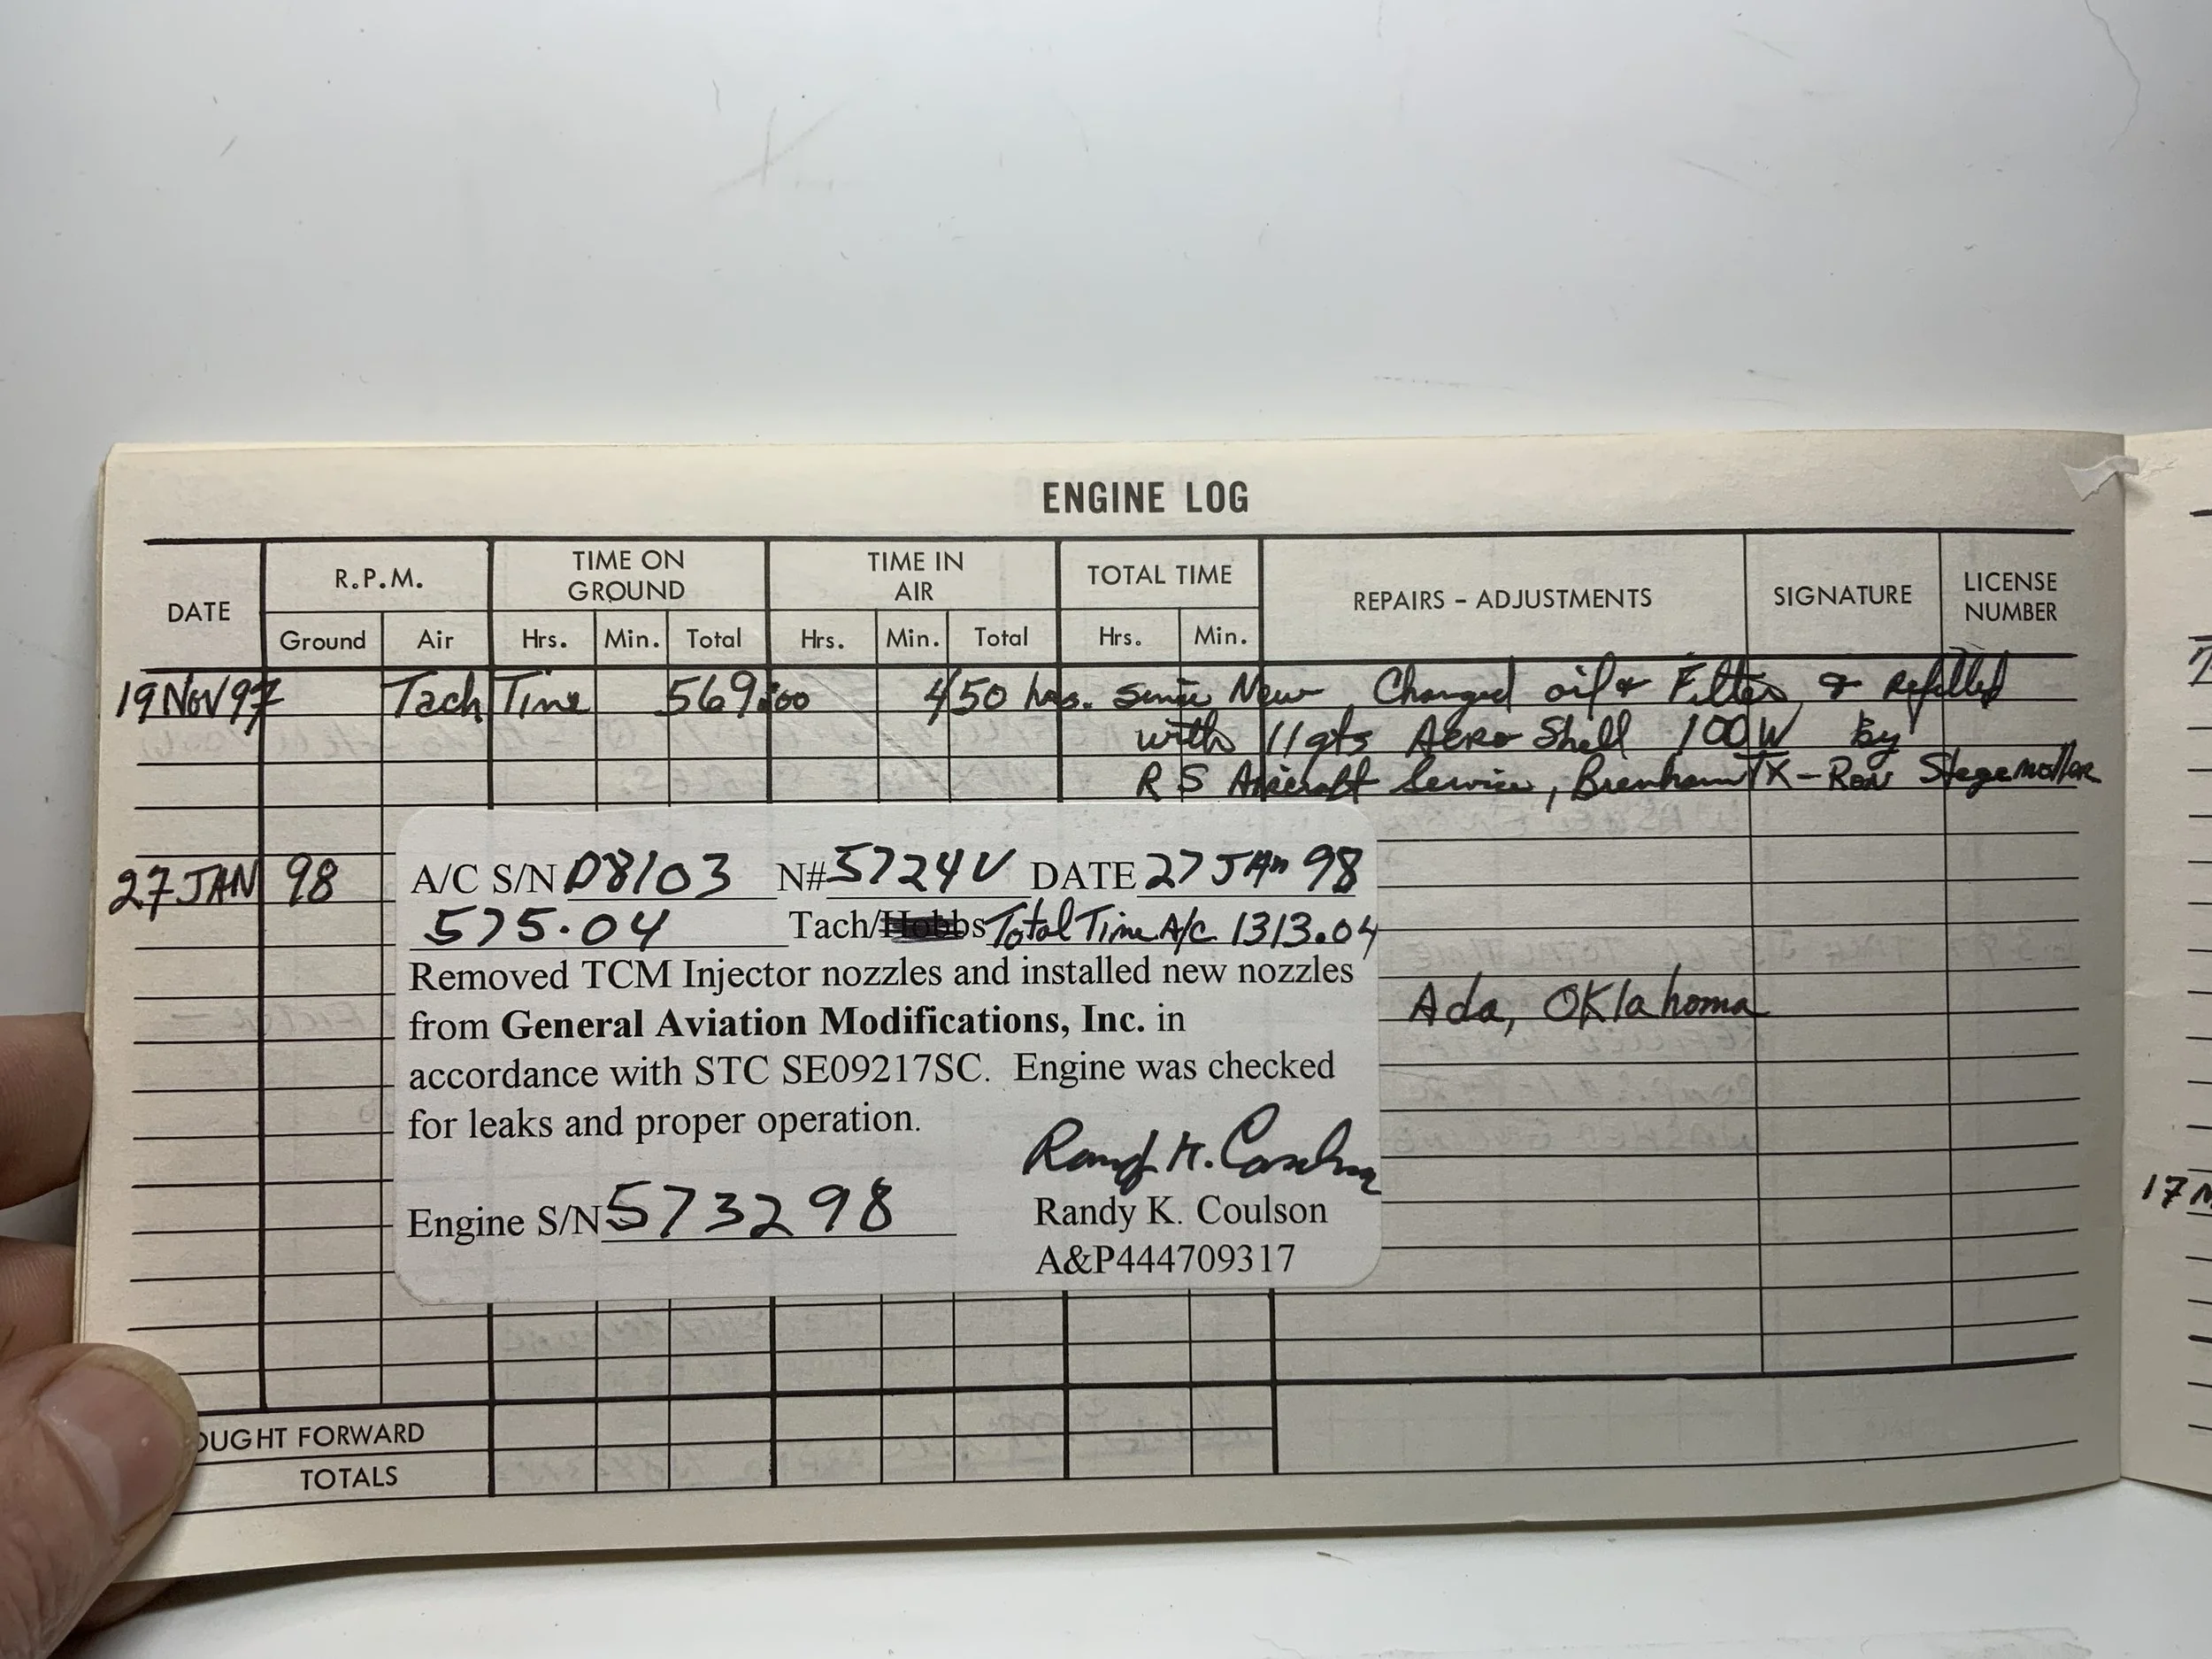 ENGINE LOG
DATE R.P.M. TIME ON GROUND TIME IN AIR TOTAL TIME REPAIRS – ADJUSTMENTS SIGNATURE LICENSE NUMBER
Ground Air Hrs. Min. Total Hrs. Min. Total Hrs. Min.
19 Nov 97 Tach Time 569.00 450 hrs. since New Changed oil & Filter & Refilled
with 11 qts Aero Shell 100W By
R S Aircraft Service, Brenham TX – Ron Stegemoller
27 JAN 98
A/C S/N D8103 N# 5724V DATE 27 JAN 98
575.04 Tach/Hobbs Total Time A/C 1313.04
Removed TCM Injector nozzles and installed new nozzles
from General Aviation Modifications, Inc. in
accordance with STC SE09217SC. Engine was checked
for leaks and proper operation.
Ada, Oklahoma
Engine S/N 573298
Randy K. Coulson
A&P444709317
17
OUGHT FORWARD
TOTALS